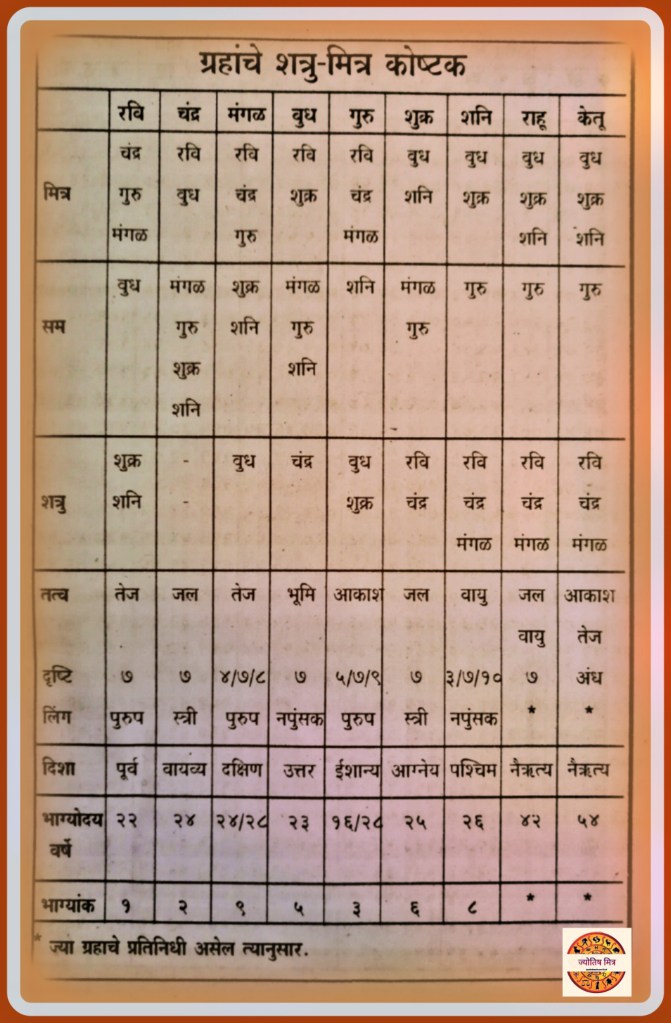 ग्रहांचे शत्रु-मित्र कोष्टक
रवि चंद्र मंगळ वुध गुरु शुक्र शनि राहू केतू
चंद्र रवि रवि रवि रवि वुध वुध वुध वुध
मित्र गुरु वुध चंद्र शुक्र चंद्र शनि शुक्र शुक्र शुक्र
मंगळ गुरु मंगळ शनि शनि
वुध मंगळ शुक्र मंगळ शनि मंगळ गुरु गुरु गुरु
सम गुरु शनि गुरु गुरु
शुक्र शनि
शनि
शुक्र - वुध चंद्र वुध रवि रवि रवि रवि
शत्रु शनि - शुक्र चंद्र चंद्र चंद्र चंद्र
मंगळ मंगळ मंगळ
तत्व तेज जल तेज भूमि आकाश जल वायु जल आकाश
वायु तेज
दृष्टि ७ ७ ४/७/८ ७ ५/७/९ ७ ३/७/१० ७ अंध
लिंग पुरुप स्त्री पुरुप नपुंसक पुरुप स्त्री नपुंसक * *
दिशा पूर्व वायव्य दक्षिण उत्तर ईशान्य आग्नेय पश्चिम नैऋत्य नैऋत्य
भाग्योदय २२ २४ २४/२८ २३ १६/२८ २५ २६ ४२ ५४
वर्षे
भाग्यांक १ २ ९ ५ ३ ६ ८ * *
* ज्या ग्रहाचे प्रतिनिधी असेल त्यानुसार.
ज्योतिष मित्र